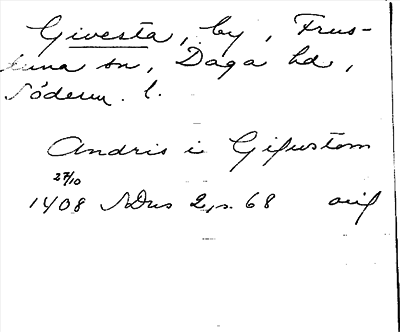 Givesta, by, Frus-
tuna sn, Daga hd,
Söderm. l.
Andris i Gifwstom
27/10
1408 SDns 2, s. 68 orig